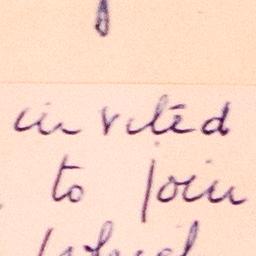 invited
to join